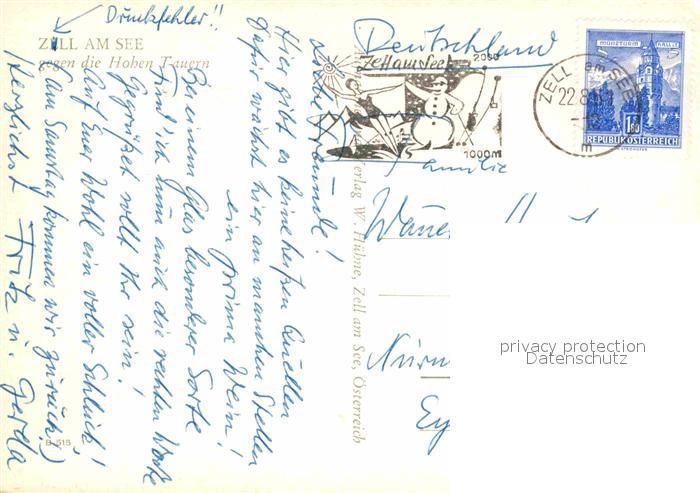 Druckfehler!!
ZELL AM SEE
gegen die Hohen Tauern
Liebe Freunde!
Hier gibt es keine heißen Quellen
dafür wächst hier an manchen Stellen
ein prima Wein!
Bei einem Glas besonderer Sorte
find' ich nun auch die rechten Worte
Gegrüßet sollt Ihr sein!
Auf Euer Wohl ein voller Schluck!
(am Samstag kommen wir zurück!)
Herzlichst Fritz u. Gerda
B 515
Verlag W. Hübne, Zell am See, Österreich
Deutschland
Zell am See
2000
1000m
ZELL am SEE
22.8
m
MÜNZTURM HALL i.T.
1.80
REPUBLIK ÖSTERREICH
Familie
Nürn
privacy protection
Datenschutz